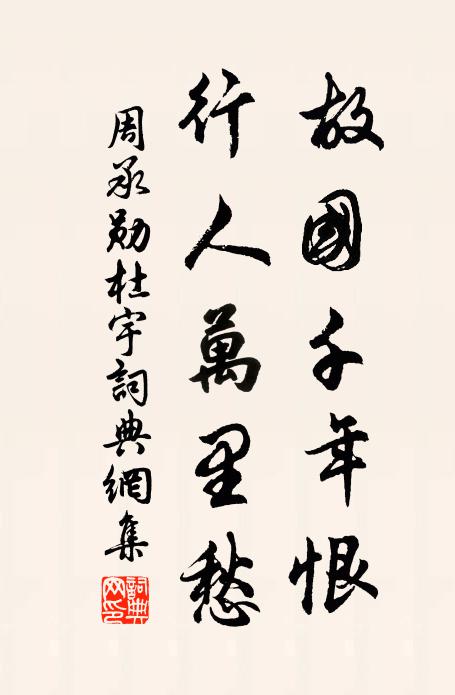 故國千年恨
行人萬里愁
周承勛杜宇詞典網集
詞典
网印